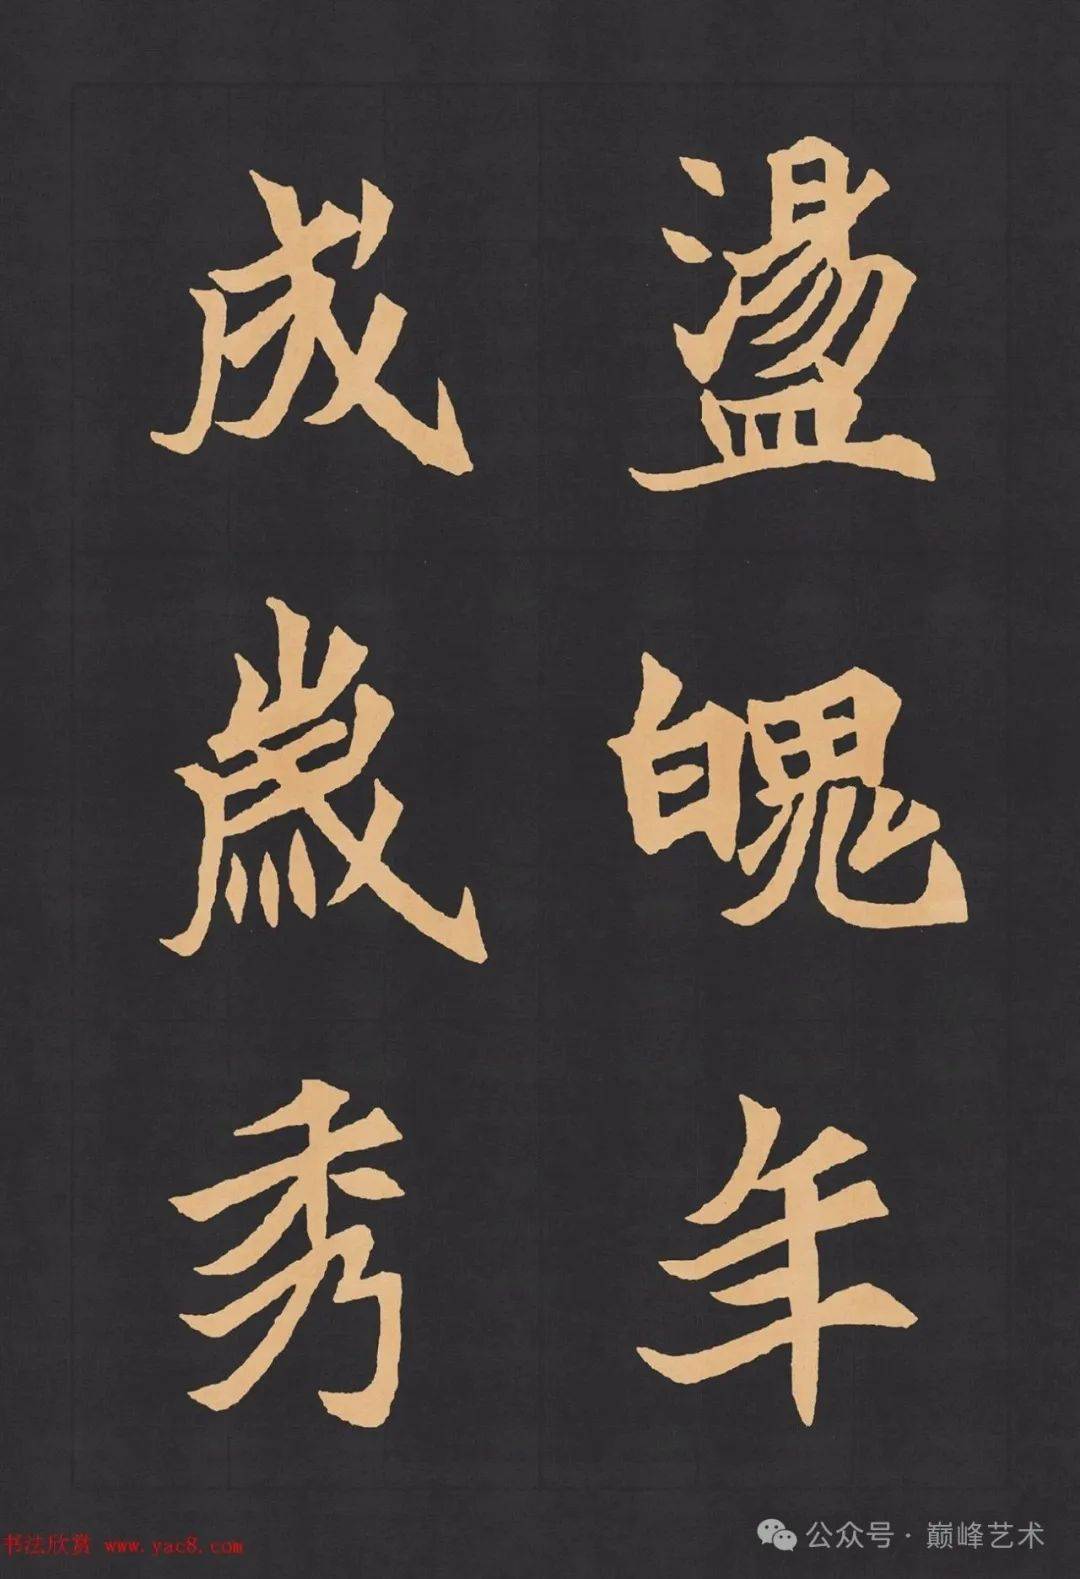 盪魄年
成歲秀
书法欣赏 www.yac8.com
公众号·巅峰艺术